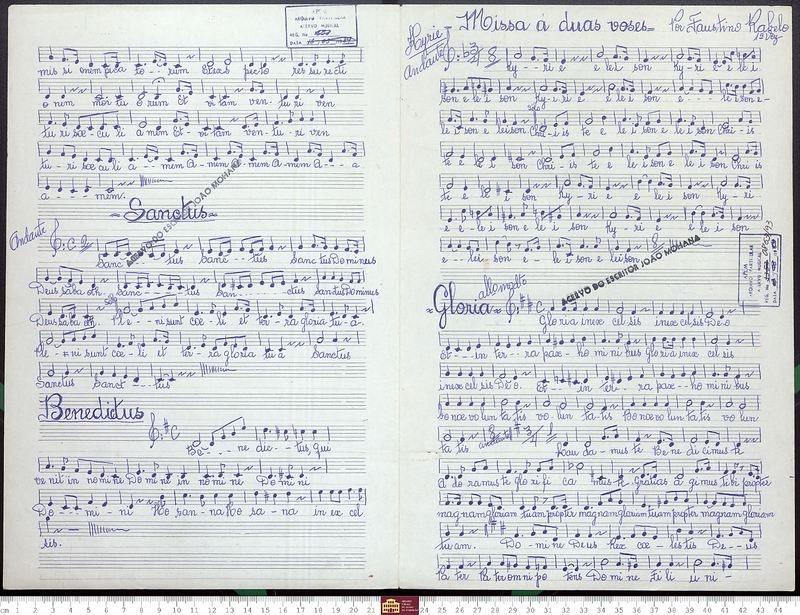 mis si onem peca to - - rum et ex s pec to res su re cti
o nem mor tu o rum Et vi tam ven - tu ri ven
tu ri sae - cu li a men Et - vi tam ven - tu - ri ven
tu - ri sae cu li a - - - men A - men A - men A - men A - - - a
a - - - men.
Sanctus
Andante
Sanc - - - tus Sanc - - tus Sanctus Dominus
Deus saba oth. Sanc - - - tus San - - - - ctus Sanctus Dominus
Deus sa ba oth. Ple - - ni sunt coe - li et ter - ra gloria tu - a.
Ple - - ni sunt coe - li et ter - ra gloria tu a Sanctus
Sanctus Sanct - - - tus
Beneditus
Be - - - ne dic - tus, qui
ve nit in no mi ne Do mi ni in no mi ne Do mi ni
Do - - - mi - ni Ho san - na Ho sa - na in ex cel
sis.
ACERVO DO ESCRITOR JOÃO MOHANA
Missa à duas voses
Por Faustino Rabelo
Kyrie
Andante
Ky - - ri e e lei son Ky - ri e - e le i
son e - le i son Ky - ri e e le i son e - - - le i son e -
le i son e lei son Chri - is te e le i son e le i son Chri - is
te e le i son Chri - is te e le i son e le i son Chri is
te e le i son Ky - - ri e e le i son Ky - ri -
e e - le i son e le i son Ky - ri e e le i son
e - - lei son e - le i son e lei son
ACERVO DO ESCRITOR JOÃO MOHANA
Gloria
Gloria in ex cel sis in ex cel sis De o
Et - - - in ter - ra pax - ho mi ni bus Gloria in ex cel sis
in ex cel sis De o. et - - in ter - ra pax - - ho mi ni bus
bo nae vo lun ta tis vo - lun ta - tis Bo nae vo lun ta tis vo lun
ta tis Lau da - mus te Be ne di cimus te
A do ra mus te glo ri fi ca mus te Gratias a gimus tibi propter
magnam gloriam tuam propter magnam gloriam tuam propter magnam gloriam
tuam. Do - mi ne Deus Rex coe - les tis De - us
Pa ter Pa ter om ni po tens Do mi ne Fi li u ni -